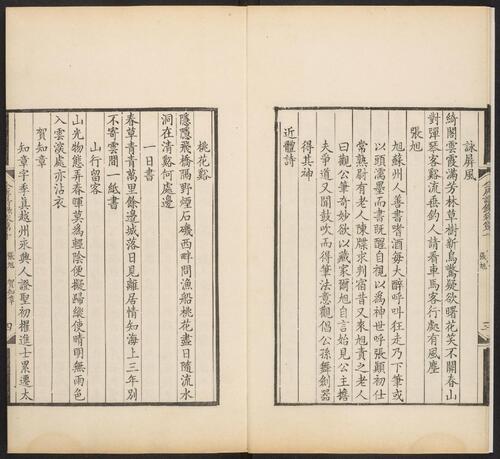 詠屏風
綺閣雲霞滿芳林草樹新鳥驚疑欲曙花笑不關春山
對彈琴客谿流垂釣人請看車馬客行處有風塵
張旭
旭蘇州人善書嗜酒每大醉呼叫狂走乃下筆或
以頭濡墨而書既醒自視以為神世呼張顛初仕
常熟尉有老人陳牒求判宿昔又來旭責之老人
曰觀公筆奇妙欲以藏家爾旭自言始見公主擔
夫爭道又聞鼓吹而得筆法意觀倡公孫舞劍器
得其神
近體詩
三
張旭
桃花谿
隱隱飛橋隔野煙石磯西畔問漁船桃花盡日隨流水
洞在清谿何處邊
一日書
春草青青萬里餘邊城落日見離居情知海上三年別
不寄雲間一紙書
山行留客
山光物態弄春暉莫為輕陰便擬歸縱使晴明無雨色
入雲深處亦沾衣
賀知章
知章字季真越州永興人證聖初擢進士累遷太
張旭 賀知章
四